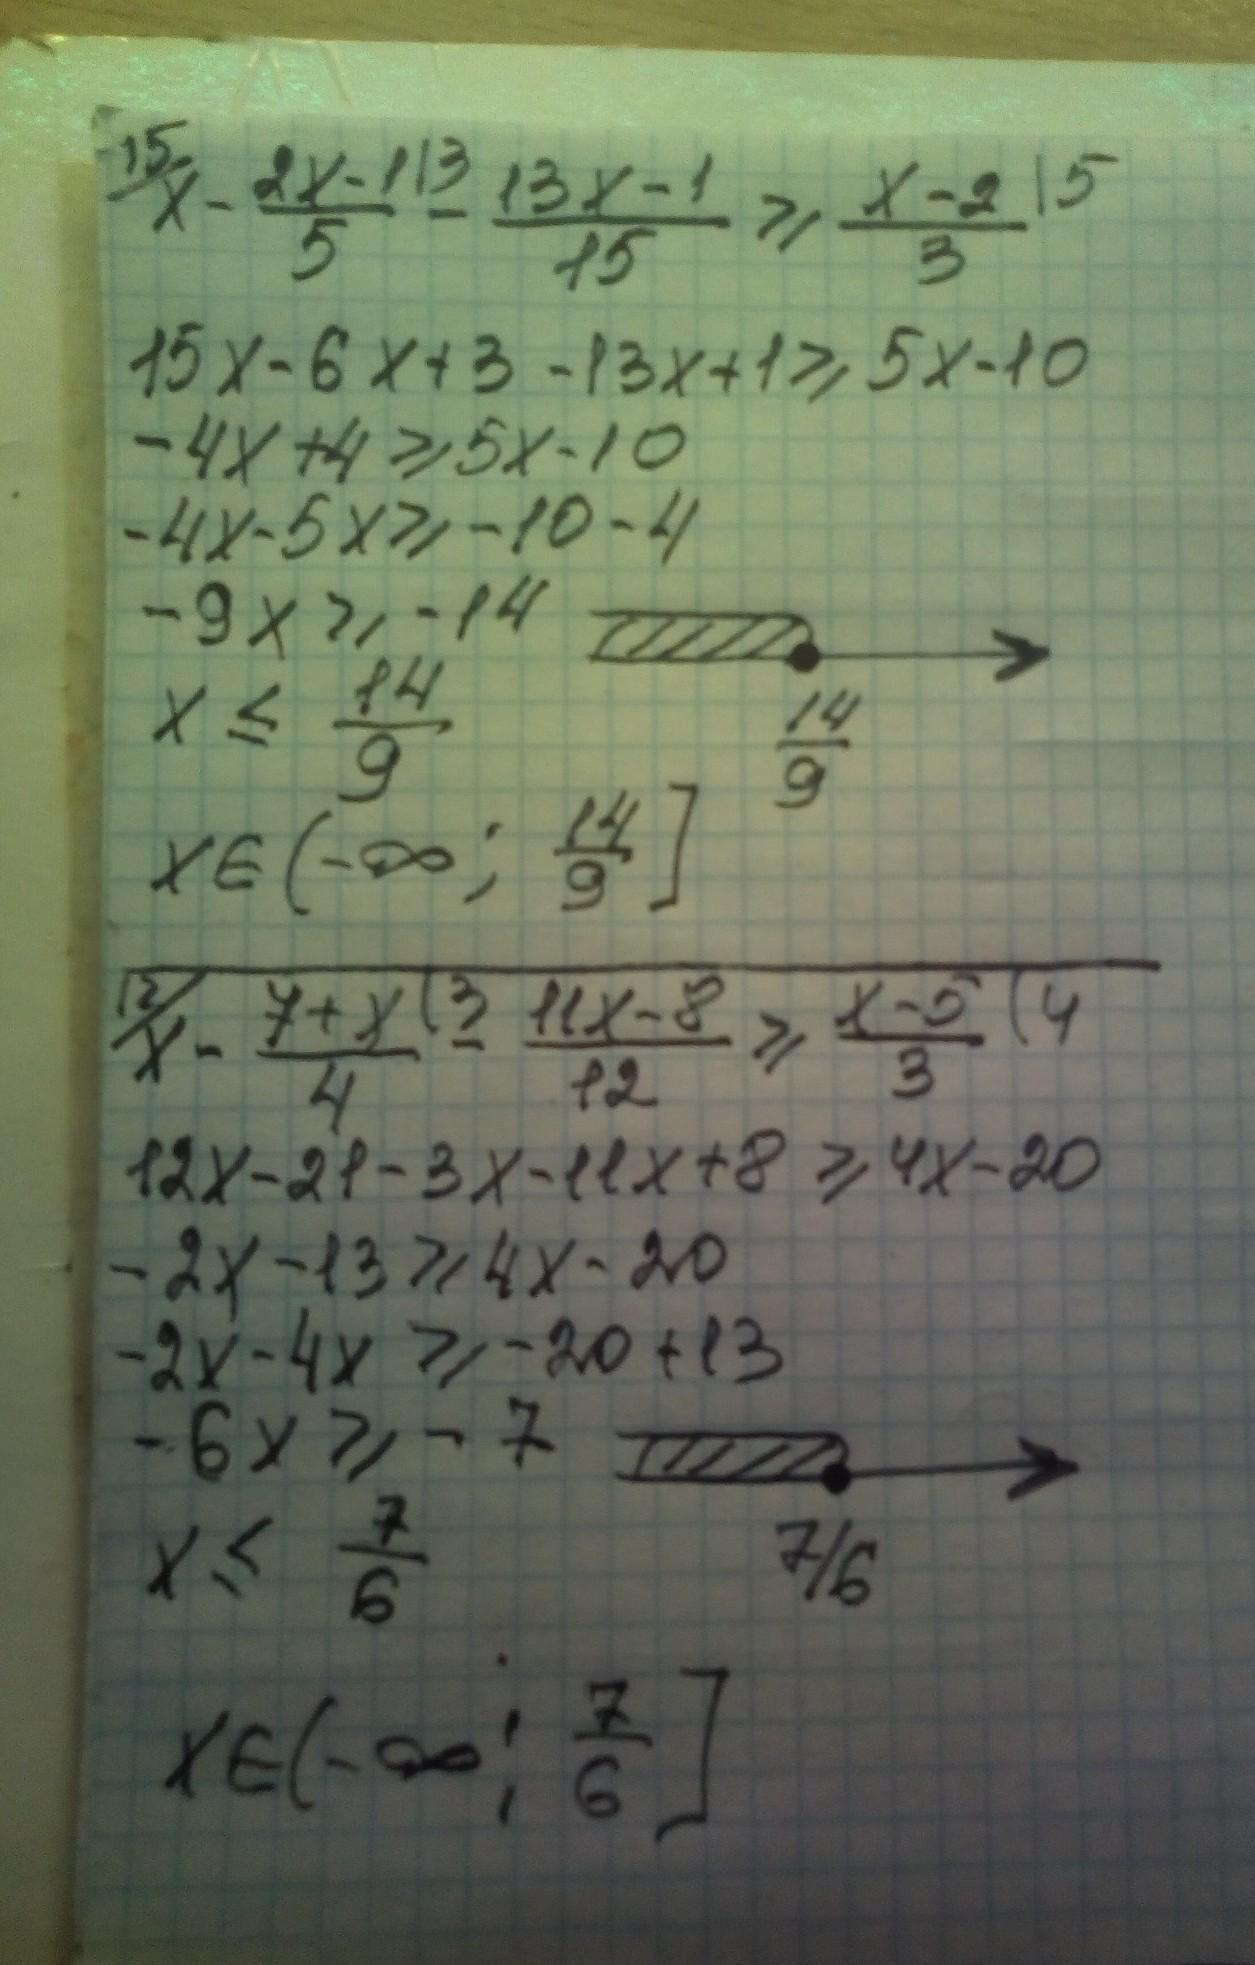 15/x - (2x-1)/5 |3 - (13x-1)/15 ⩾ (x-2)/3 |5
15x-6x+3-13x+1⩾5x-10
-4x+4⩾5x-10
-4x-5x⩾-10-4
-9x⩾-14
x ≤ 14/9
14/9
x∈(-∞; 14/9]
12/x - (7+x)/4 (3 - (11x-8)/12 ⩾ (x-5)/3 (4
12x-21-3x-11x+8⩾4x-20
-2x-13⩾4x-20
-2x-4x⩾-20+13
-6x⩾-7
x ≤ 7/6
7/6
x∈(-∞; 7/6]